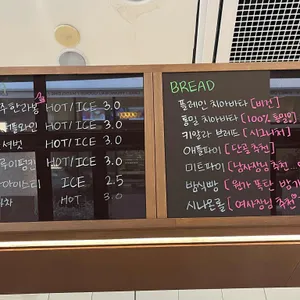 주한라봉 HOT/ICE 3.0
HOT/ICE 3.0
셔벗 HOT/ICE 3.0
HOT/ICE 3.0
아이스티 ICE 2.5
HOT 3.0
BREAD
플레인 치아바타 [비건]
통밀 치아바타 (100% 통밀)
키알라 브레드 [시그니처]
애플파이 [단골추천]
미트파이 [남자사장님 추천
밤식빵 [원가 폭탄
시나몬롤 [여사장님 추천